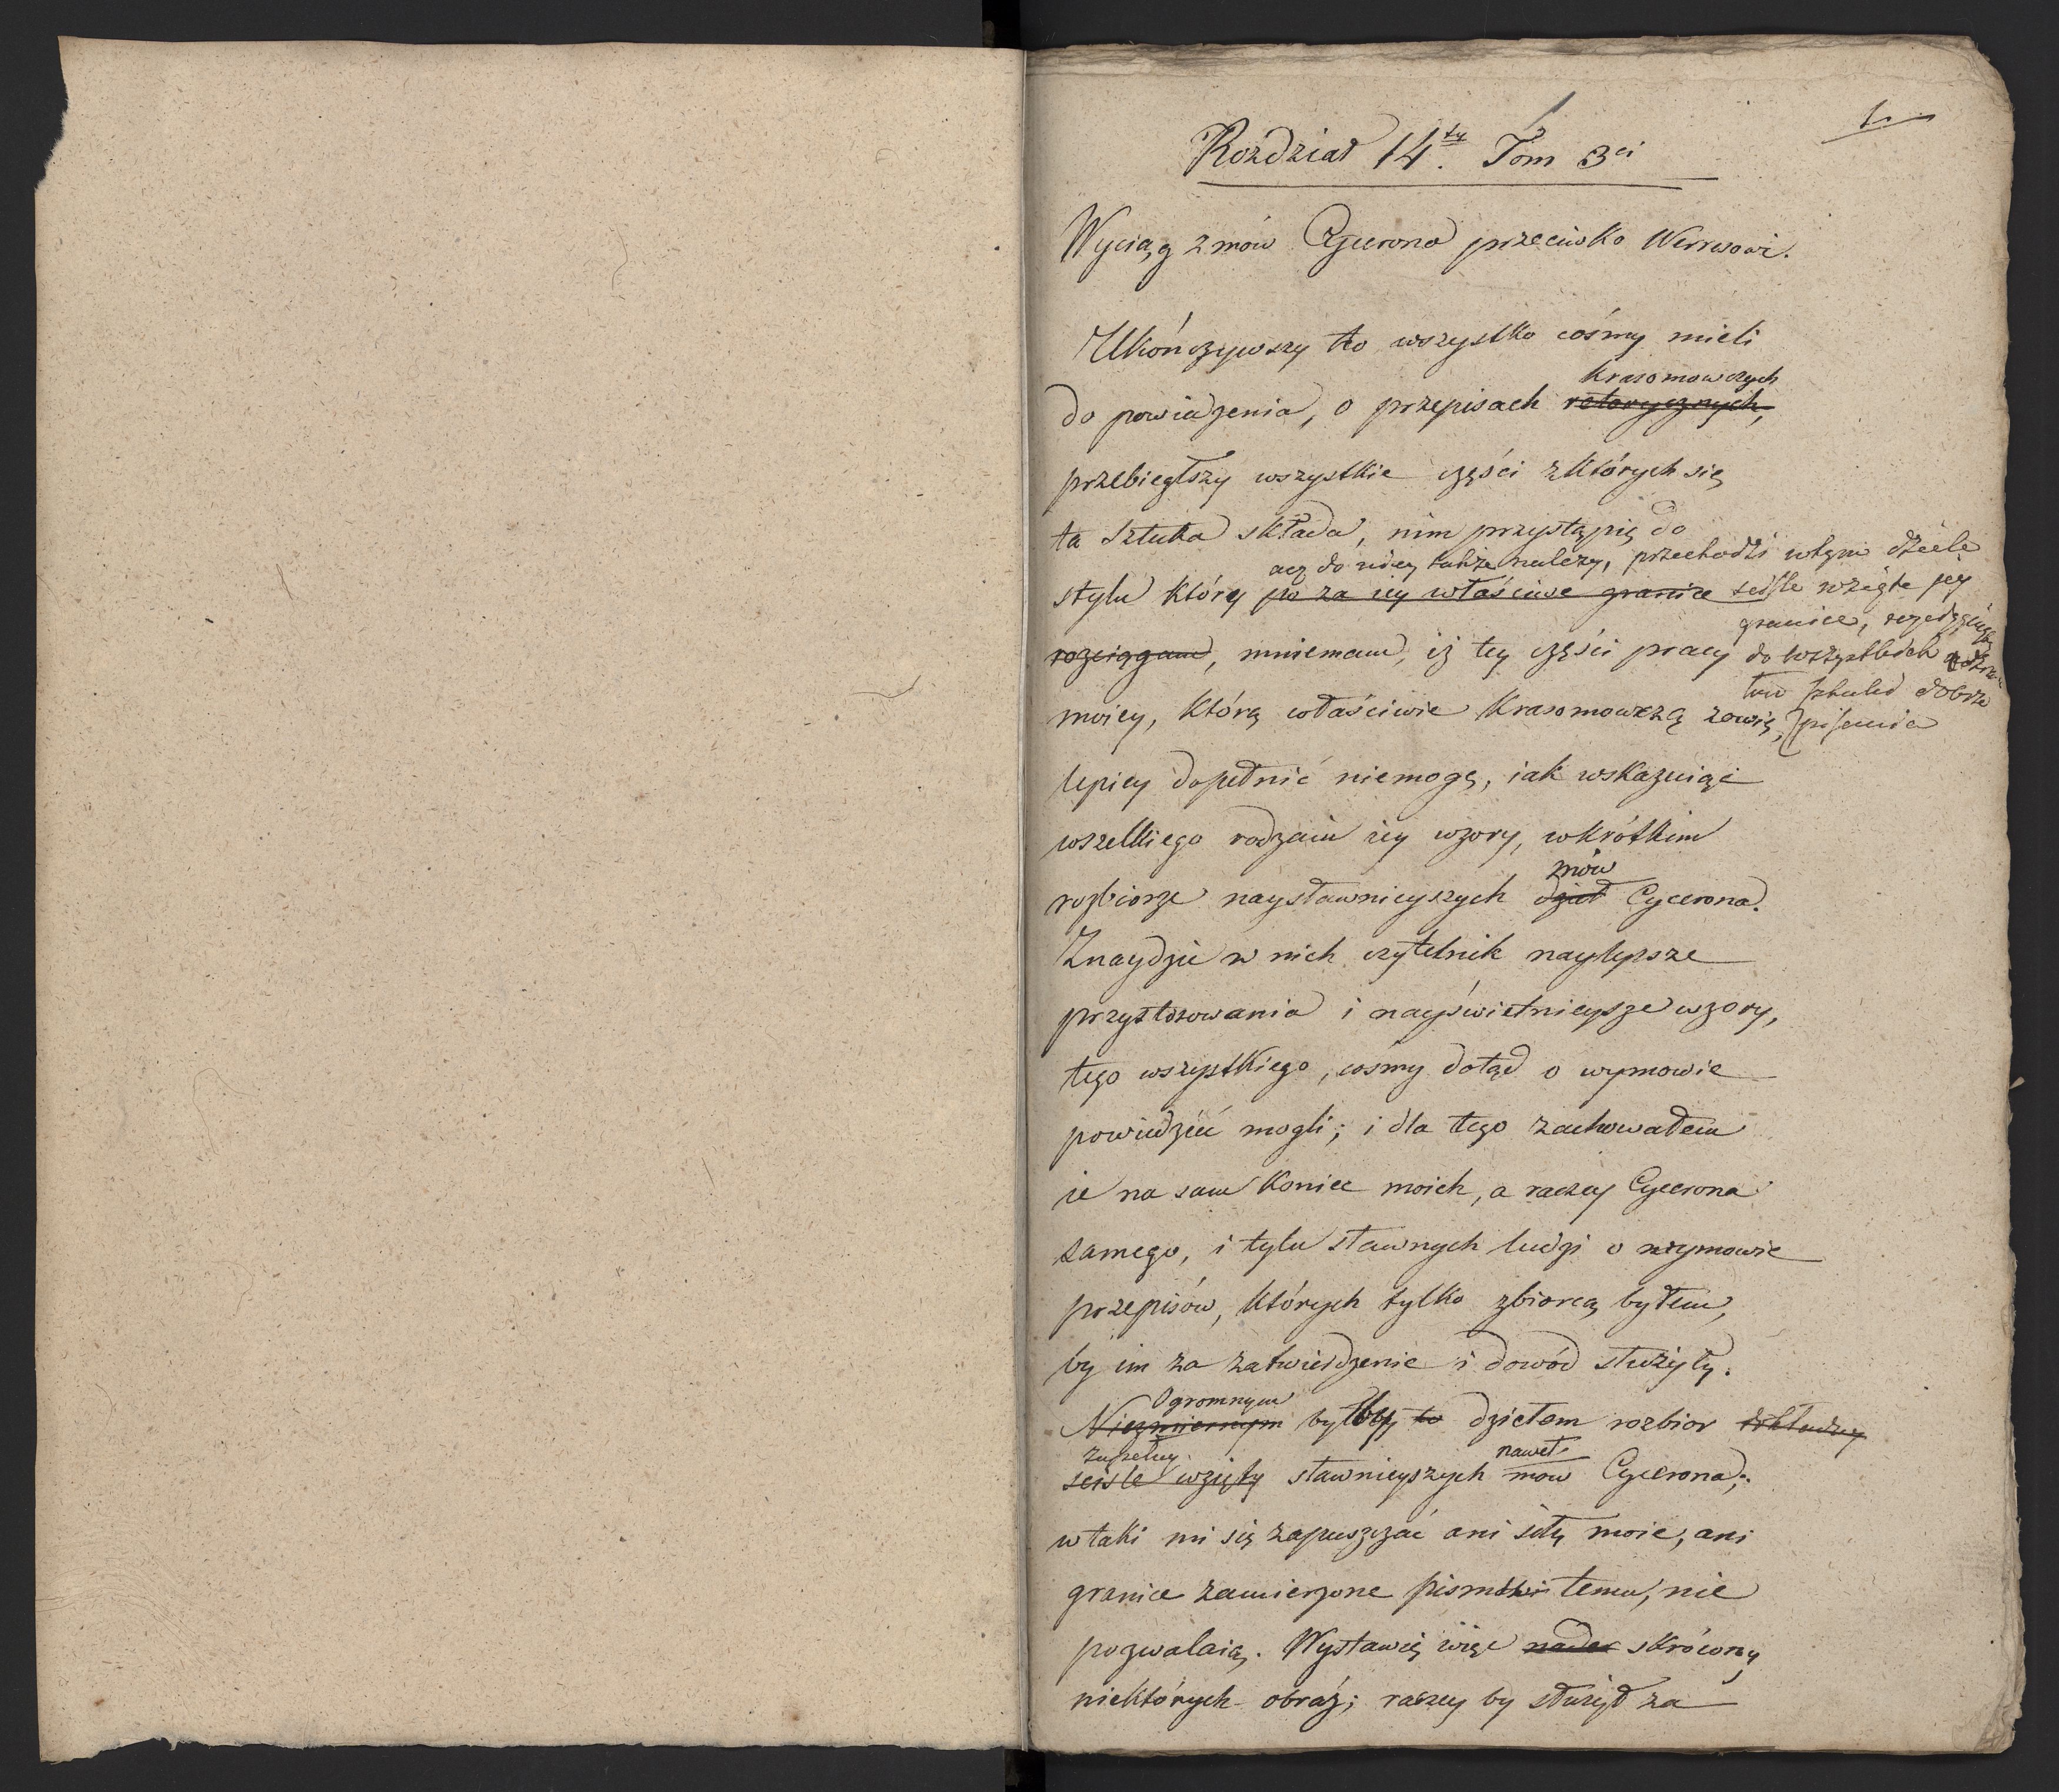 1.
Rozdział 14ty. Tom 3ci
Wyciąg z mów Cycerona przeciwko Werresowi.
Ukończywszy to wszystko cośmy mieli
krasomowczych
do powiedzenia, o przepisach retorycznych,
przebiegłszy wszystkie części z których się
ta sztuka składa, nim przystąpię do
acz do niey także należy, przechodzi w tym dziele
stylu który po za iey właściwe granice ściśle wzięte jey
granice,
rozciągam, mniemam, iż tey części pracy do wszystkich
sztuki dobrze
moiey, którą właściwie Krasomowczą zowię, pisania
lepiey dopełnić niemogę, iak wskazuiąc
wszelkiego rodzaiu iey wzory, w krótkim
mów
rozbiorze naysławnieyszych dzieł Cycerona.
Znaydzie w nich czytelnik naylepsze
przystosowania i nayświetnieysze wzory,
tego wszystkiego, cośmy dotąd o wymowie
powiedzieć mogli; i dla tego zachowałem
ie na sam koniec moich, a raczey Cycerona
samego, i tylu sławnych ludzi o wymowie
przepisów, których tylko zbiorcą byłem,
by im za zatwierdzenie i dowód służyły.
Ogromnym
Niezmiernym byłoby to dziełem rozbior dokładny
zupełny nawet
ściśle wzięty sławnieyszych mow Cycerona;
w taki mi się zapuszczać ani siły moie, ani
granice zamierzone pismu temu, nie
pozwalaią. Wystawię więc nader skrócony
niektórych obraz; raczey by służył za